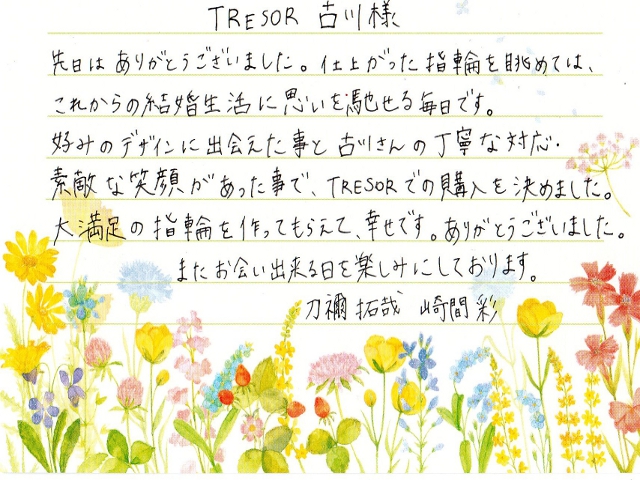 TRESOR 古川様
先日は ありがとうございました。仕上がった 指輪を眺めては、
これからの結婚生活に思いを馳せる毎日です。
好みのデザインに出会えた事と 古川さんの丁寧な対応・
素敵な笑顔があった事で、TRESORでの購入を決めました。
大満足の指輪を作ってもらえて、幸せです。ありがとうございました。
またお会い出来る日を楽しみにしております。
刀禰 拓哉 崎間 彩